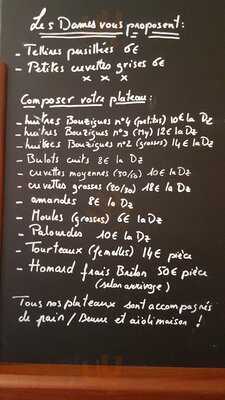 Les Dames vous proposent :
- Tellines persillées 6€
- Petites crevettes grises 6€
x x x
Composer votre plateau :
- huîtres Bouzigues n°4 (petites) 10€ la Dz
- huitres Bouzigues n°3 (My) 12€ la Dz
- huîtres Bouzigues n°2 (grosses) 14€ la Dz
- Bulots cuits 8€ la Dz
- crevettes moyennes (30/40) 10€ la Dz
- crevettes grosses (20/30) 18€ la Dz
- amandes 8€ la Dz
- Moules (grosses) 6€ la Dz
- Palourdes 10€ la Dz
- Tourteaux (femelles) 14€ pièce
- Homard frais Breton 50€ pièce
(selon arrivage)
Tous nos plateaux sont accompagnés
de pain / Beurre et aïoli maison !